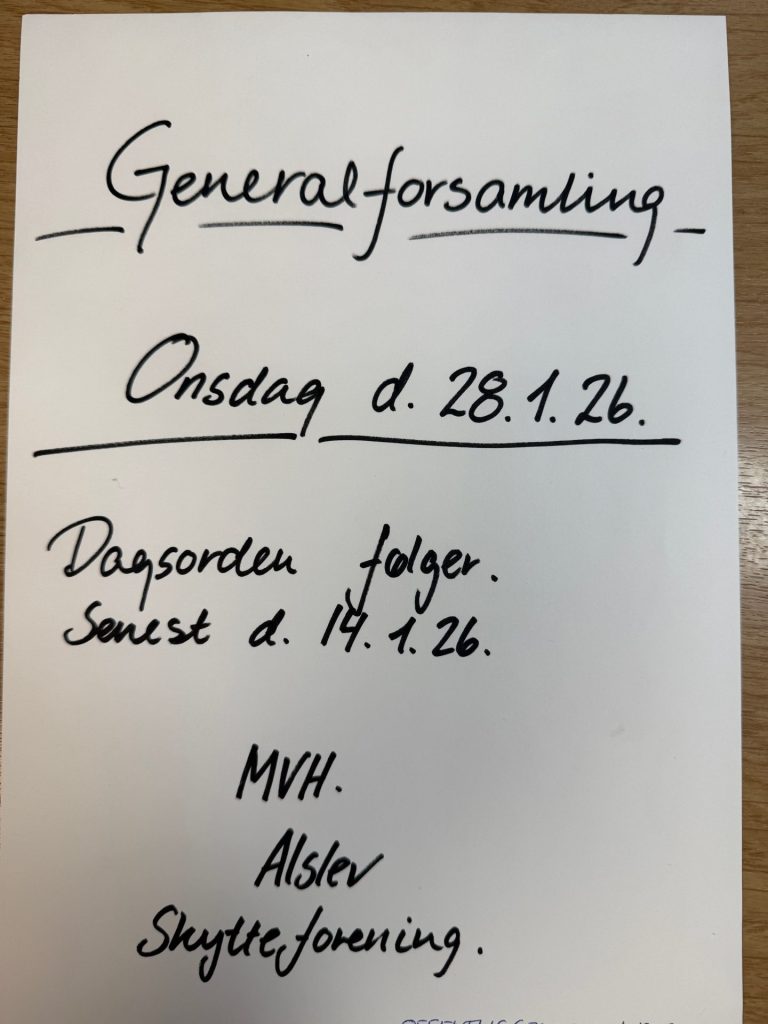 Generalforsamling
Onsdag d. 28.1.26.
Dagsorden følger.
Senest d. 14.1.26.
MVH.
Alslev
Skytteforening.